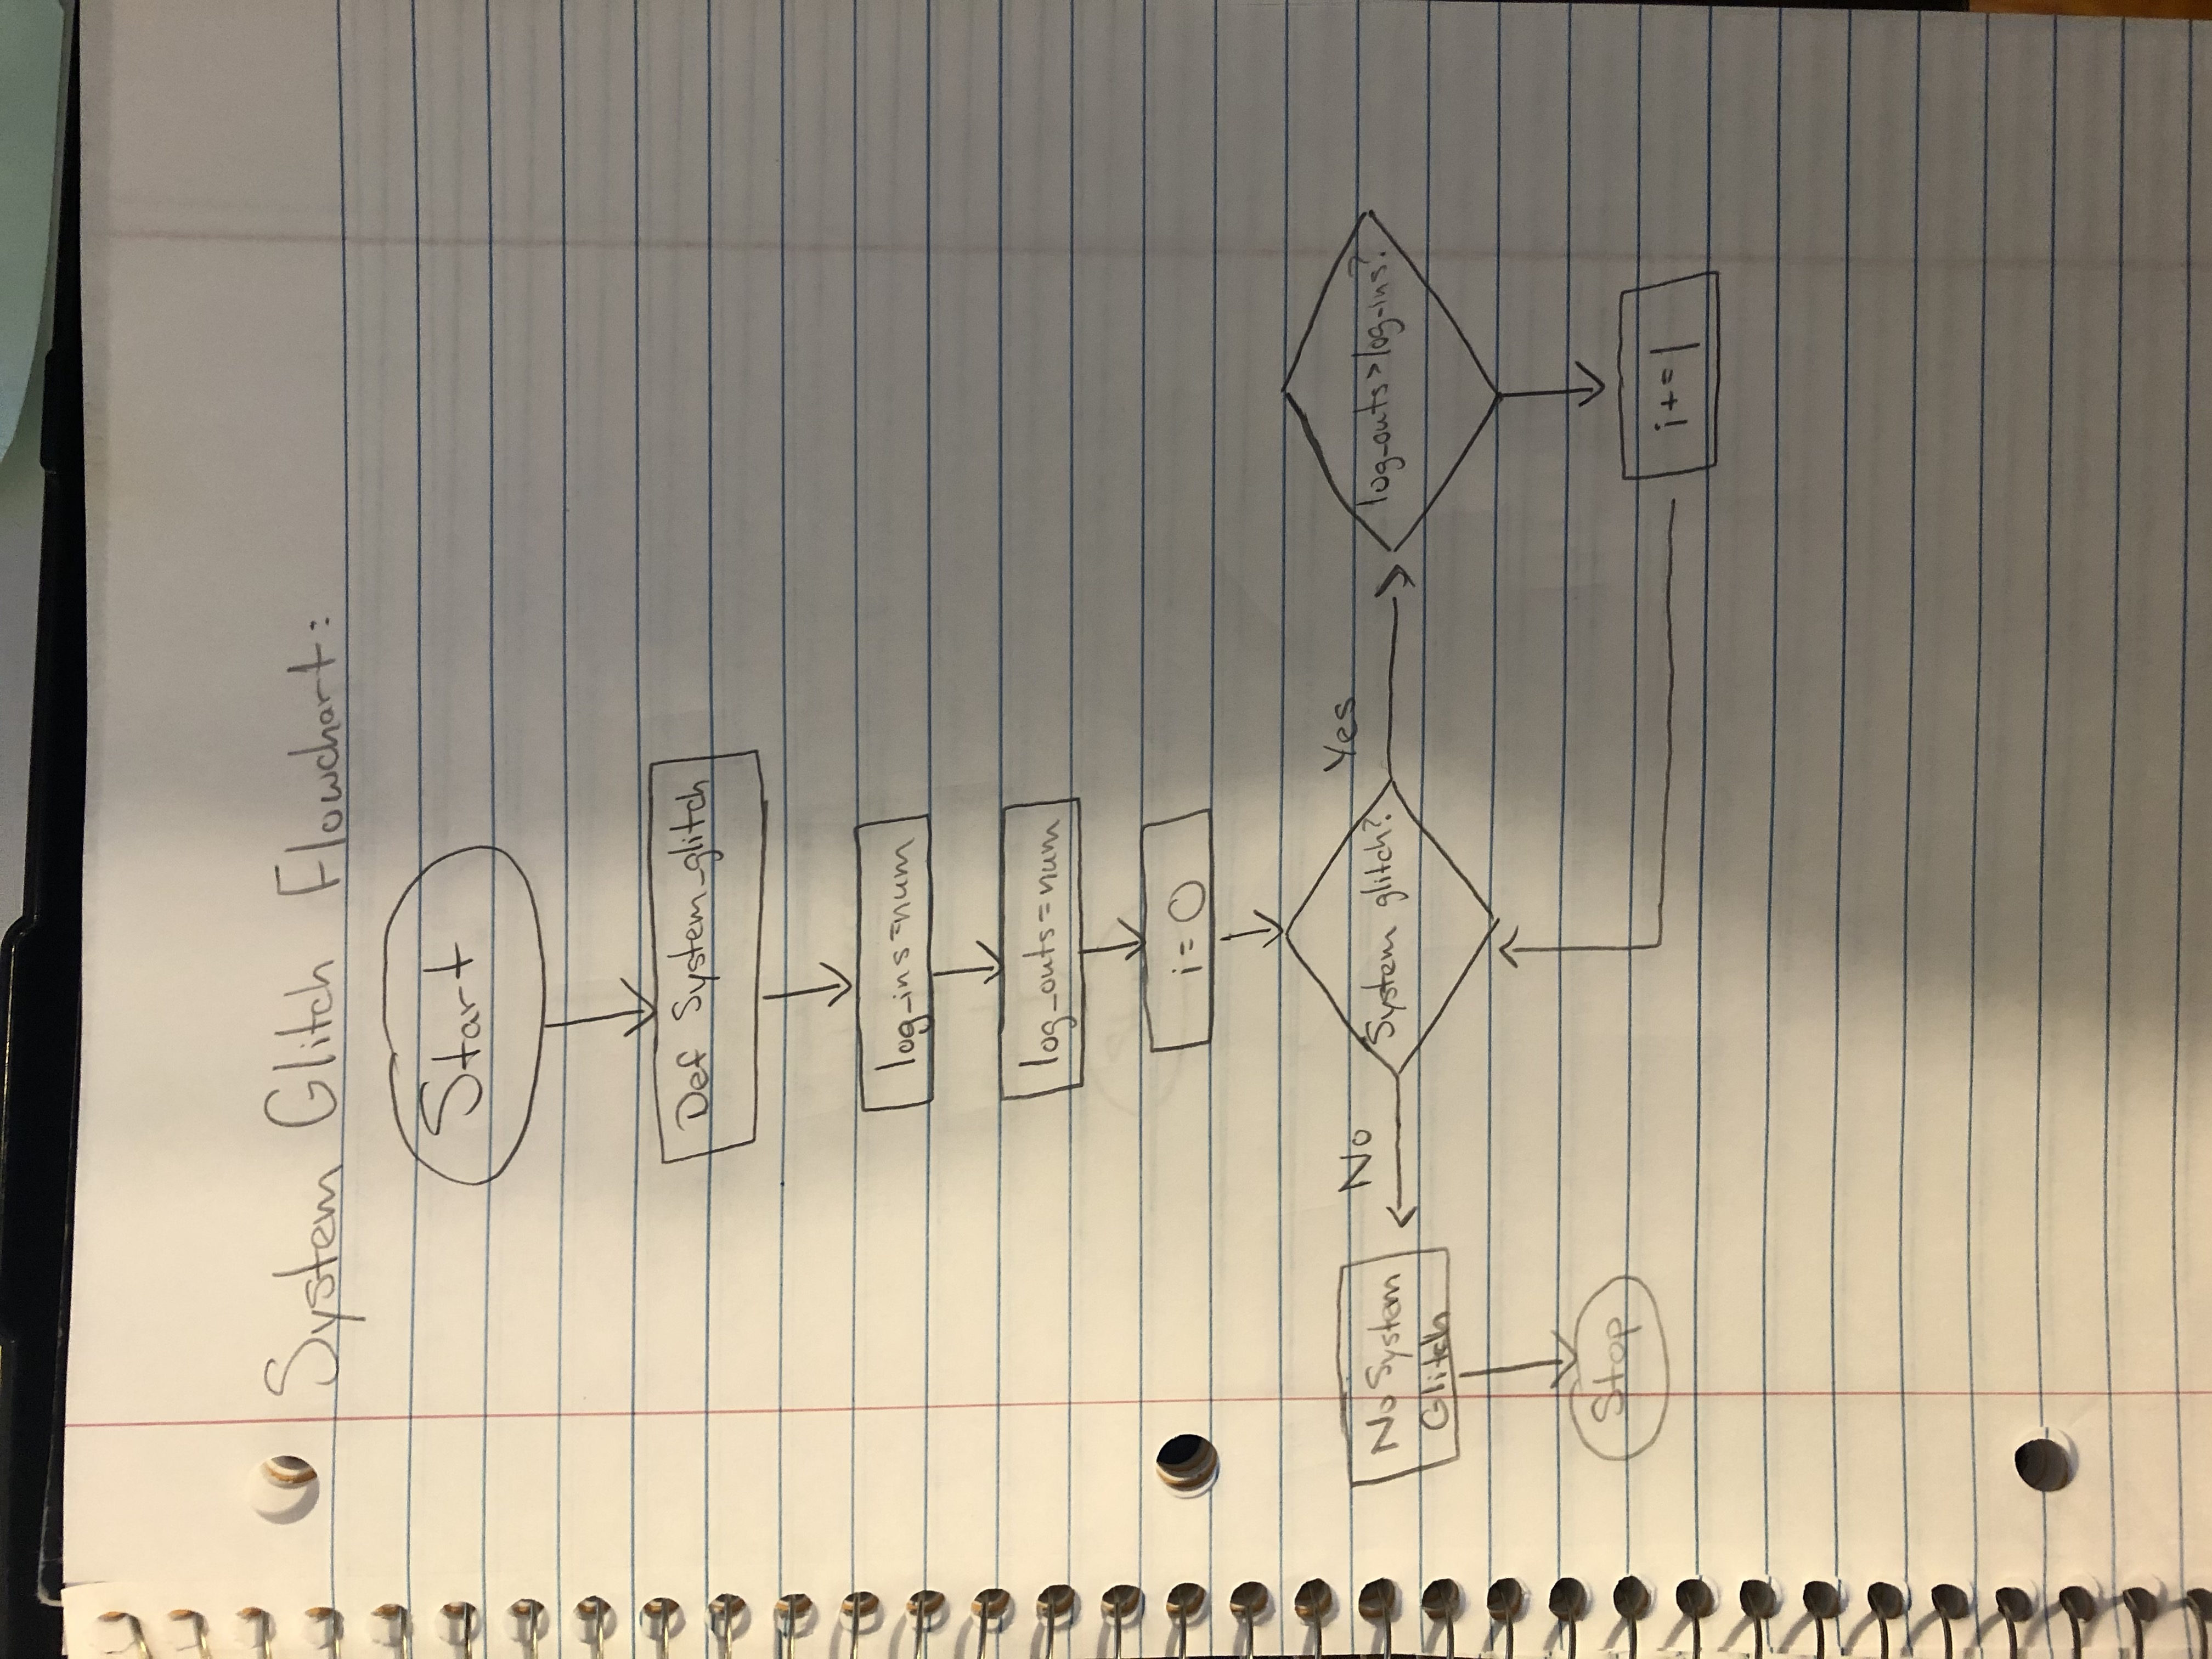 System Glitch Flowchart:
Start
Def System_glitch
log_ins=num
log_outs=num
i=0
No
Yes
No System
Glitch
System glitch?
log_outs>log_ins?
Stop
i+=1